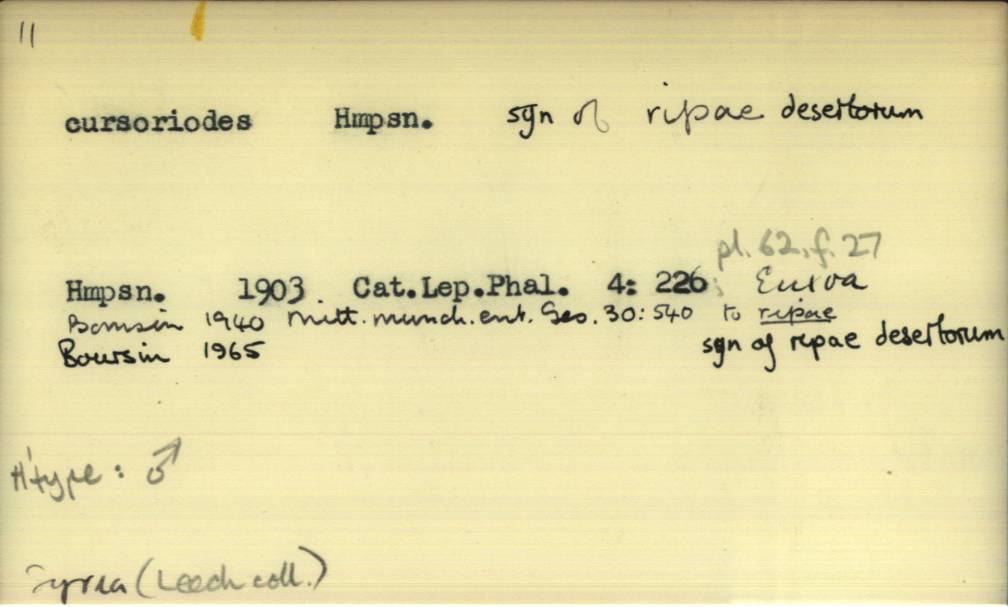 11
cursoriodes Hmpsn. syn of ripae desertorum
pl. 62, f. 27
Hmpsn. 1903. Cat.Lep.Phal. 4: 226; Euxoa
Boursin 1940 Mitt. munch. ent. Ges. 30: 540 to ripae
Boursin 1965 syn of ripae desertorum
H'type: ♂
Syria (Leech coll.)